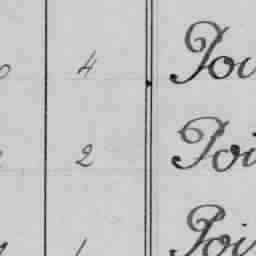 4 Pou
2 Poi
Poi